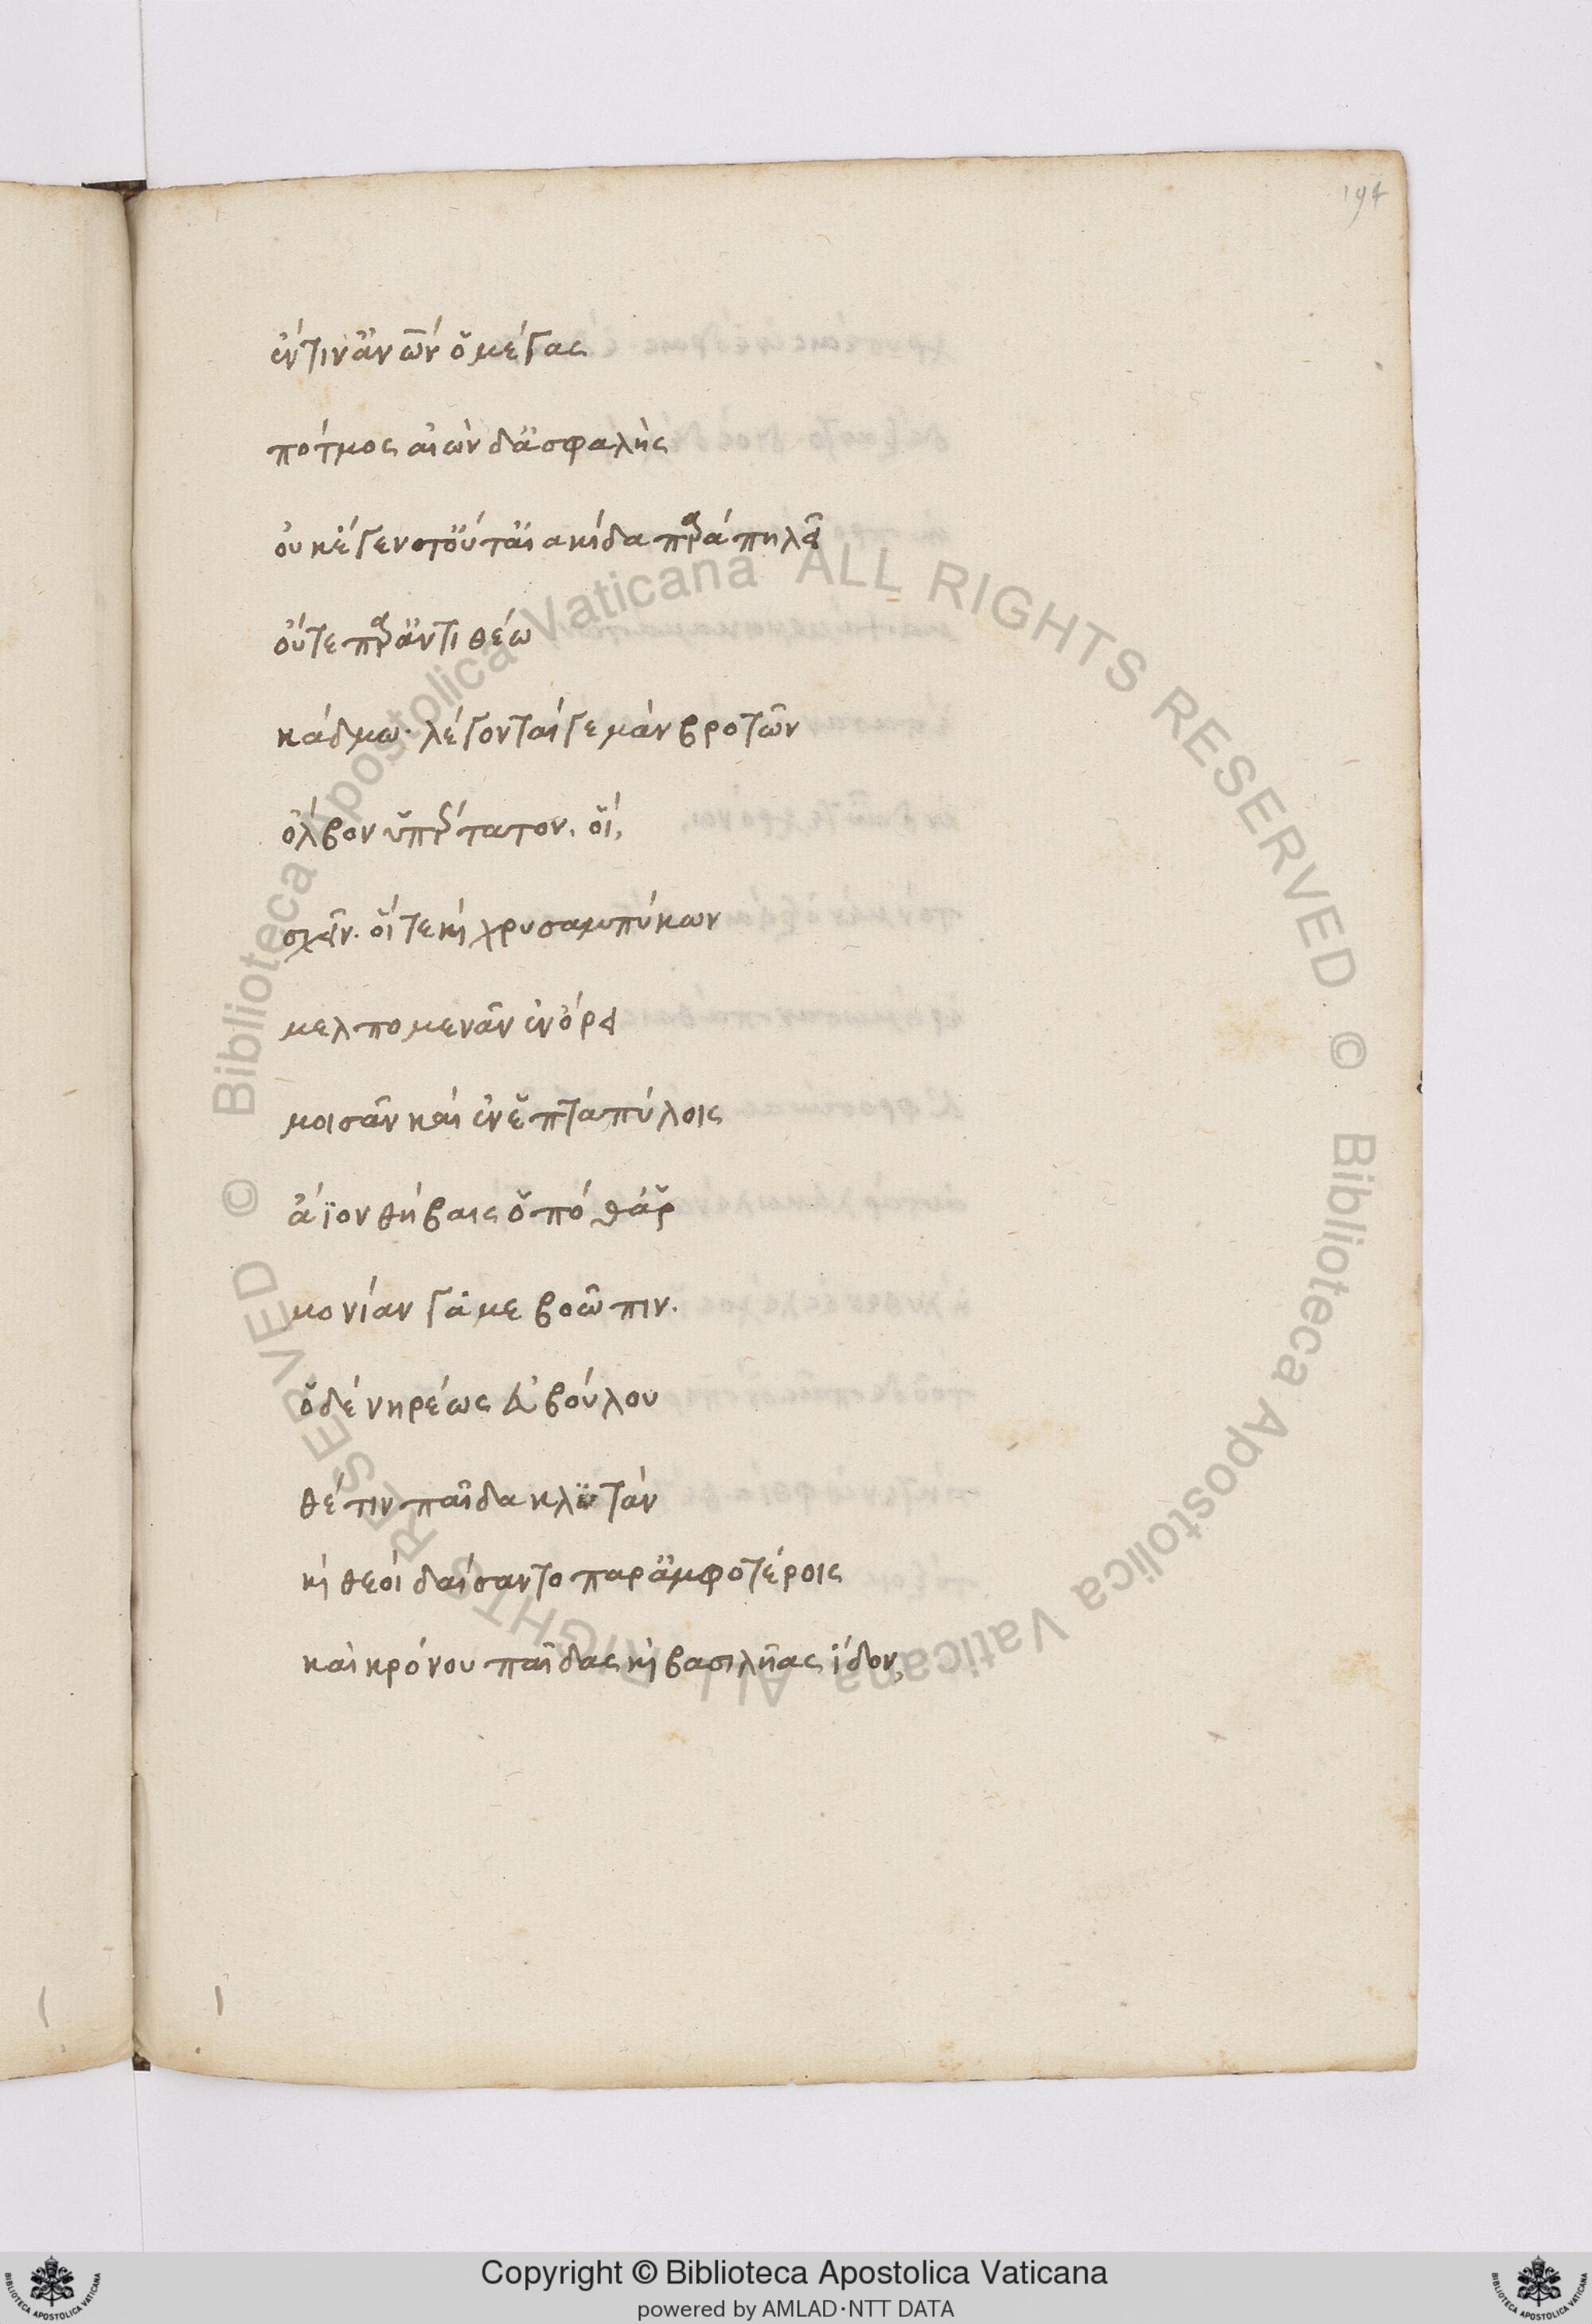 194
εἴ τιν' ἀνθρώπων ὁ μέγας
πότμος αἰὼν δ' ἀσφαλὴς
οὐκ ἔγεντ' οὔτ' αἰακίδα παρὰ πηλεῖ
οὔτε παρ' ἀντιθέω
κάδμω. λέγονταί γε μὰν βροτῶν
ὄλβον ὑπέρτατον. οἵ,
σχεῖν. οἵ τε καὶ χρυσαμπύκων
μελπομενᾶν ἐν ὄρει
μοισᾶν καὶ ἐν ἑπταπύλοις
ἄϊον θήβαις ὁπόθ' ἁρ
μονίαν γᾶμε βοῶπιν.
ὁ δὲ νηρέως εὐβούλου
θέτιν παῖδα κλυτάν
καὶ θεοὶ δαίσαντο παρ' ἀμφοτέροις
καὶ κρόνου παῖδας καὶ βασιλῆας ἴδον,
© Biblioteca Apostolica Vaticana ALL RIGHTS RESERVED © Biblioteca Apostolica Vaticana ALL RIGHTS RESERVED
Copyright © Biblioteca Apostolica Vaticana
powered by AMLAD·NTT DATA